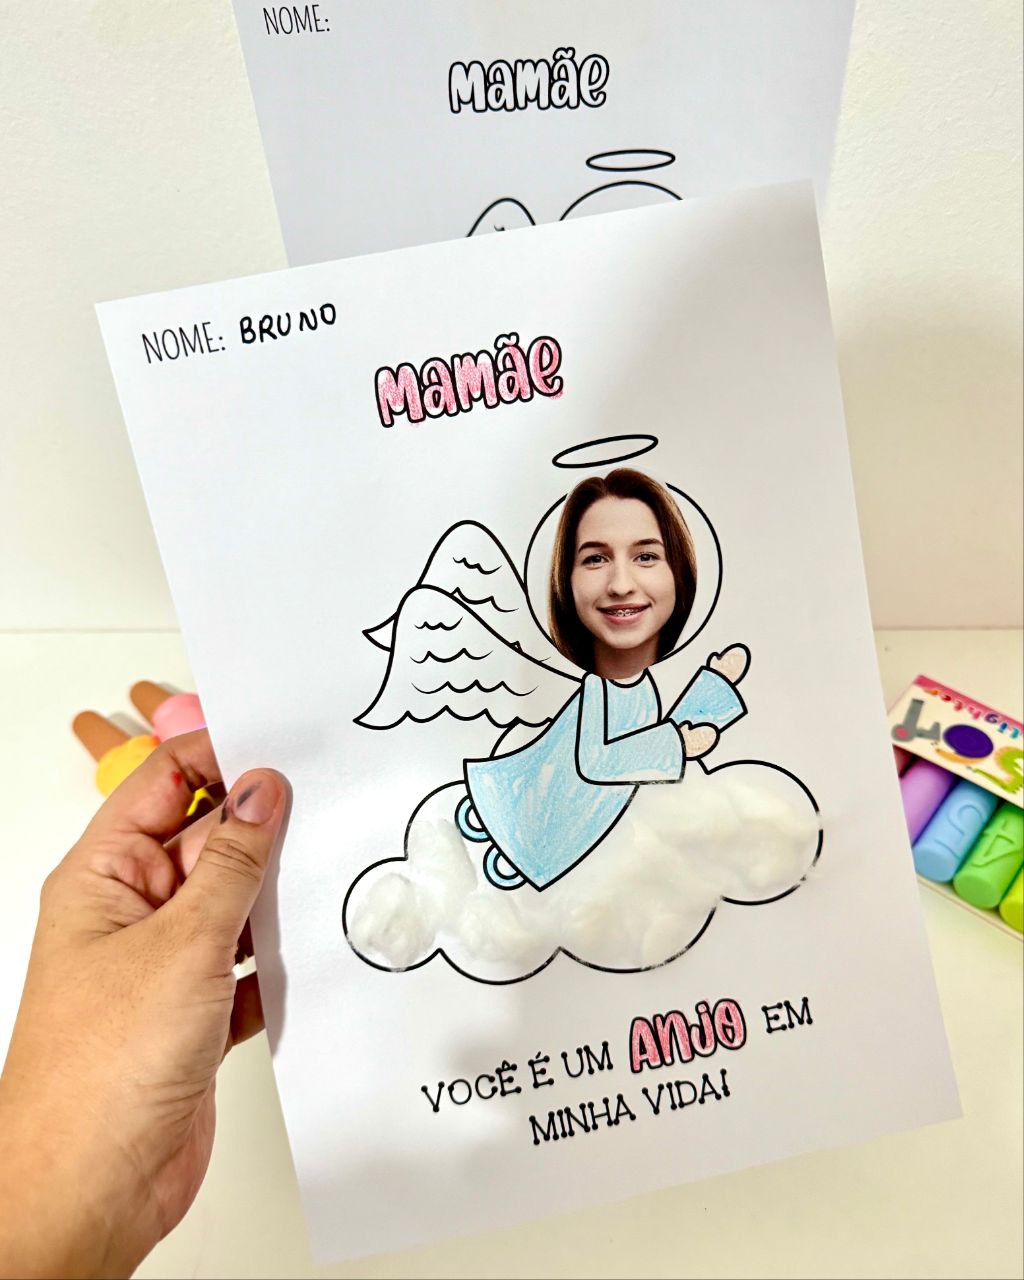 NOME:
mamãe
NOME: BRUNO
mamãe
VOCÊ É UM ANJO EM
MINHA VIDA!